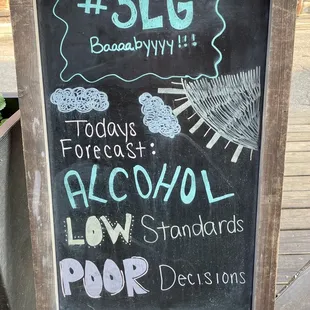 #SLG
Baaaabyyyy!!!
Todays
Forecast:
ALCOHOL
LOW Standards
POOR Decisions